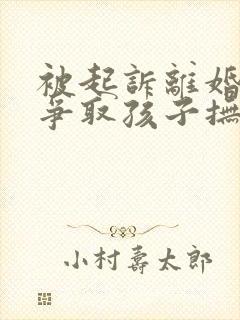 被起訴離婚
爭取孩子撫
小村壽太郎